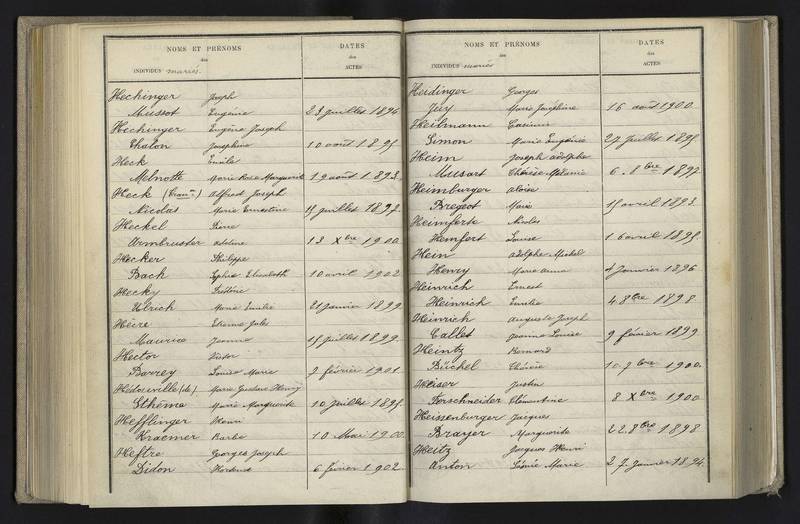 NOMS ET PRÉNOMS
des
INDIVIDUS mariés.
DATES
des
ACTES
Hechinger Joseph
Mussot Eugénie 23 juillet 1894
Hechinger Eugène Joseph
Chalon Joséphine 10 août 1895.
Heck Emile
Melnotte Marie Rose Marguerite 19 août 1893.
Heck Alfred Joseph
Nicolas Marie Ernestine 15 juillet 1897.
Heckel Pierre
Armbruster Adeline 13 Xbre 1900.
Hecker Philippe
Bach Sophie Elisabeth 10 avril 1902
Hecky
Ulrich Marie Emilie 21 janvier 1899.
Hécre Etienne Jules
Maurice Jeanne 15 juillet 1899.
Hector Victor
Barrey Louise Marie 2 février 1901.
Hédouville (de) Marie Gustave Henry
Sthème Marie Marguerite 10 juillet 1895.
Hefflinger Henri
Kraemer Barbe 10 Mai 1900.
Heftre Georges Joseph
Didon Hortense 6 février 1902.
NOMS ET PRÉNOMS
des
INDIVIDUS mariés
DATES
des
ACTES
Heidinger Georges
Juy Marie Joséphine 16 août 1900.
Heilmann Casimir
Simon Marie Eugénie 27 juillet 1895.
Heim Joseph Adolphe
Mussart Thérèse Mélanie 6. 8bre 1892
Heimburger Aloïse
Bregeot Marie 15 avril 1893.
Heimferte Nicolas
Hemfert Louise 16 avril 1895.
Hein Adolphe Michel
Henry Marie Anna 4 janvier 1896
Heinrich Ernest
Heinrich Emilie 4. 8bre 1898.
Heinrich Auguste Joseph
Callet Jeanne Louise 9 février 1899
Heintz Bernard
Büchel Thérèse 10. 9bre 1900.
Heiser Justin
Forschneider Clémentine 8 Xbre 1900
Heissenburger Jacques
Brayer Marguerite 22. 8bre 1898
Heitz Jacques Henri
Anton Léonie Marie 27. janvier 1894.